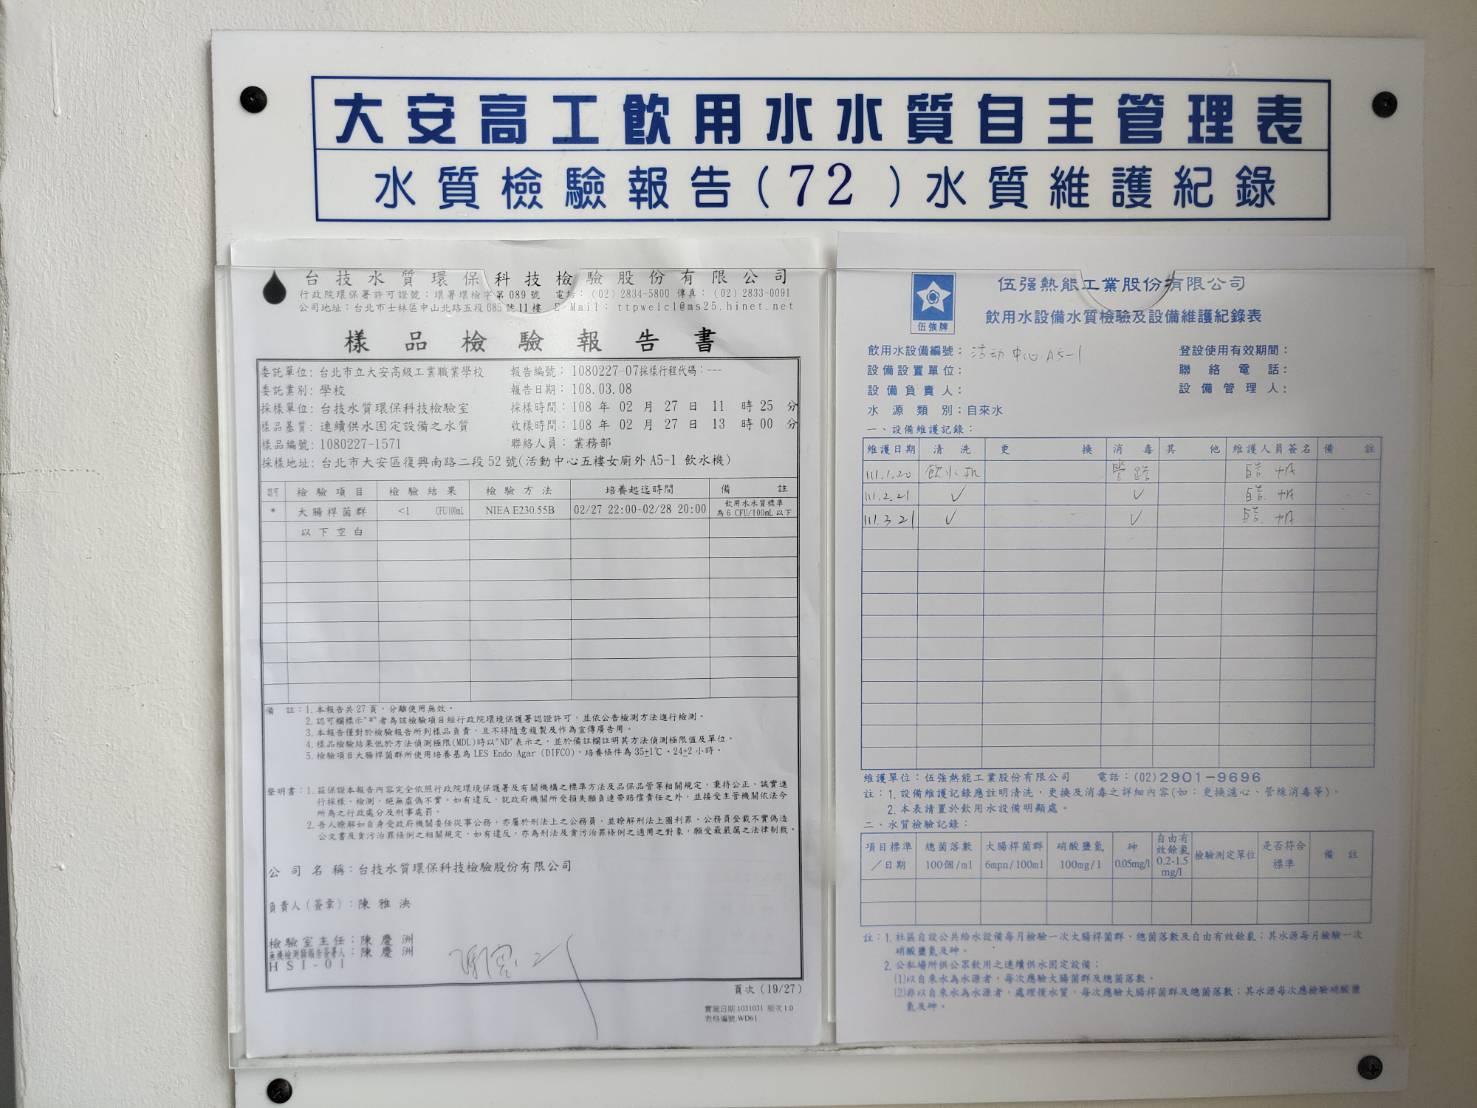 大安高工飲用水水質自主管理表
水質檢驗報告(72)水質維護紀錄
台技水質環保科技檢驗股份有限公司
行政院環保署許可證號：環署環檢字第089號 電話：(02) 2834-5800 傳真：(02) 2833-0091
公司地址：台北市士林區中山北路五段685號11樓 E-Mail： ttpwelcl@ms25.hinet.net
樣品檢驗報告書
委託單位：台北市立大安高級工業職業學校 報告編號：1080227-07採樣行程代碼：---
委託業別：學校 報告日期：108.03.08
採樣單位：台技水質環保科技檢驗室 採樣時間：108 年 02 月 27 日 11 時 25 分
樣品基質：連續供水固定設備之水質 收樣時間：108 年 02 月 27 日 13 時 00 分
樣品編號：1080227-1571 聯絡人員：業務部
採樣地址：台北市大安區復興南路二段52號(活動中心五樓女廁外 A5-1 飲水機)
認可 檢驗項目 檢驗結果 檢驗方法 培養起迄時間 備註
* 大腸桿菌群 <1 CFU/100mL NIEA E230.55B 02/27 22:00-02/28 20:00 飲用水水質標準
為6 CFU/100mL以下
以下空白
備 註：1.本報告共27頁，分離使用無效。
2.認可欄標示"*"者為該檢驗項目經行政院環境保護署認證許可，並依公告檢測方法進行檢測。
3.本報告僅對於檢驗報告所列樣品負責，且不得隨意複製及作為宣傳廣告用。
4.樣品檢驗結果低於方法偵測極限(MDL)時以"ND"表示之，並於備註欄註明其方法偵測極限值及單位。
5.檢驗項目大腸桿菌群所使用培養基為 LES Endo Agar (DIFCO)，培養條件為 35±1℃，24±2 小時。
聲明書：1.茲保證本報告內容完全依照行政院環境保護署及有關機構之標準方法及品保品管等相關規定，秉持公正、誠實進
行採樣、檢測，絕無虛偽不實，如有違反，就政府機關所受損失願負連帶賠償責任之外，並接受主管機關依法令
所為之行政處分及刑事處罰。
2.吾人瞭解如自身受政府機關委任從事公務，亦屬於刑法上之公務員，並瞭解刑法上圖利罪、公務員登載不實偽造
公文書及貪污治罪條例之相關規定，如有違反，亦為刑法及貪污治罪條例之適用之對象，願受最嚴厲之法律制裁。
公司名稱：台技水質環保科技檢驗股份有限公司
負責人(簽章)：陳雅泱
檢驗室主任：陳慶洲
無機檢測類報告簽署人：陳慶洲
HSI-01
頁次 (19/27)
實施日期:1031031 版次:1.0
表格編號:WD61
伍強牌
伍强熱能工業股份有限公司
飲用水設備水質檢驗及設備維護紀錄表
飲用水設備編號：活动中心 A5-1 登設使用有效期間：
設備設置單位： 聯絡電話：
設備負責人： 設備管理人：
水源類別：自來水
一、設備維護記錄：
維護日期 清洗 更換 消毒 其他 維護人員簽名 備註
111.1.20 飲水机
111.2.21 ✓ ✓
111.3.21 ✓ ✓
維護單位：伍強熱能工業股份有限公司 電話：(02)2901-9696
註：1.設備維護記錄應註明清洗、更換及消毒之詳細內容(如：更換濾心、管線消毒等)。
2.本表請置於飲用水設備明顯處。
二、水質檢驗記錄：
項目標準／日期 總菌落數100個/ml 大腸桿菌群6mpn/100ml 硝酸鹽氮100mg/l 砷0.05mg/l 自由有效餘氯0.2-1.5mg/l 檢驗測定單位 是否符合標準 備註
註：1.社區自設公共給水設備每月檢驗一次大腸桿菌群、總菌落數及自由有效餘氯；其水源每月檢驗一次
硝酸鹽氮及砷。
2.公私場所供公眾飲用之連續供水固定設備：
⑴以自來水為水源者，每次應驗大腸桿菌群及總菌落數。
⑵非以自來水為水源者，處理後水質，每次應驗大腸桿菌群及總菌落數；其水源每次應檢驗硝酸鹽
氮及砷。